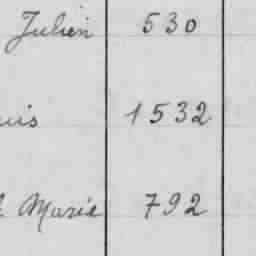 Julien 530
uis 1532
Marie 792